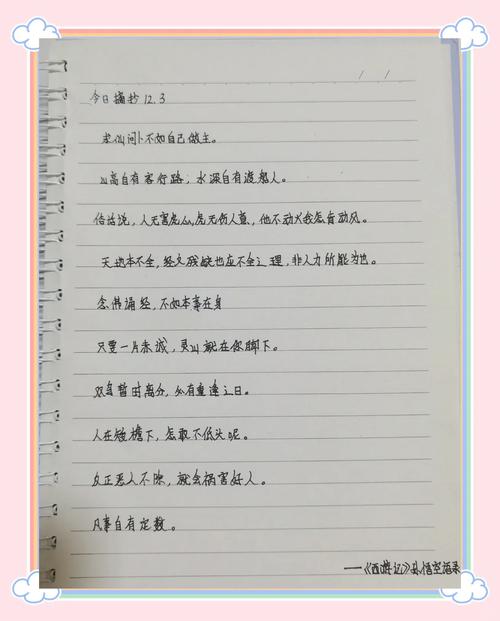 / /
今日摘抄12.3
求仙问卜不如自己做主。
山高自有客行路，水深自有渡船人。
俗话说，人无害虎心，虎无伤人意，他不动火我怎肯动风。
天地本不全，经文残缺也应不全之理，非人力所能为也。
念佛诵经，不如本事在身
只要一片赤诚，灵山就在你脚下。
双鸟暂由离分，必有重逢之日。
人在矮檐下，怎敢不低头呢。
反正恶人不除，就会祸害好人。
凡事自有定数。
——《西游记》孙悟空语录